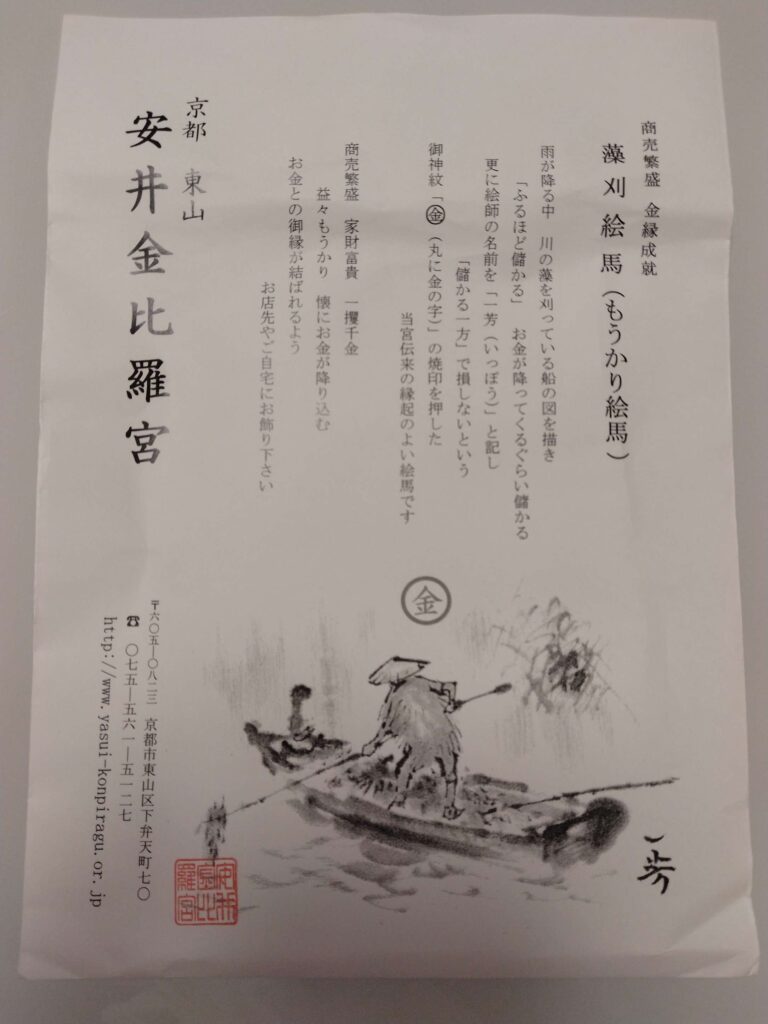 商売繁盛　金縁成就
藻刈絵馬（もうかり絵馬）
雨が降る中　川の藻を刈っている船の図を描き
「ふるほど儲かる」　お金が降ってくるぐらい儲かる
更に絵師の名前を「一芳（いっぽう）」と記し
「儲かる一方」で損しないという
御神紋「㊎（丸に金の字）」の焼印を押した
当宮伝来の縁起のよい絵馬です
商売繁盛　家財富貴　一攫千金
益々もうかり　懐にお金が降り込む
お金との御縁が結ばれるよう
お店先やご自宅にお飾り下さい
京都　東山
安井金比羅宮
㊎
一芳
〒六〇五―〇八二三　京都市東山区下弁天町七〇
☎　〇七五―五六一―五一二七
http://www.yasui-konpiragu.or.jp
安井
金比
羅宮